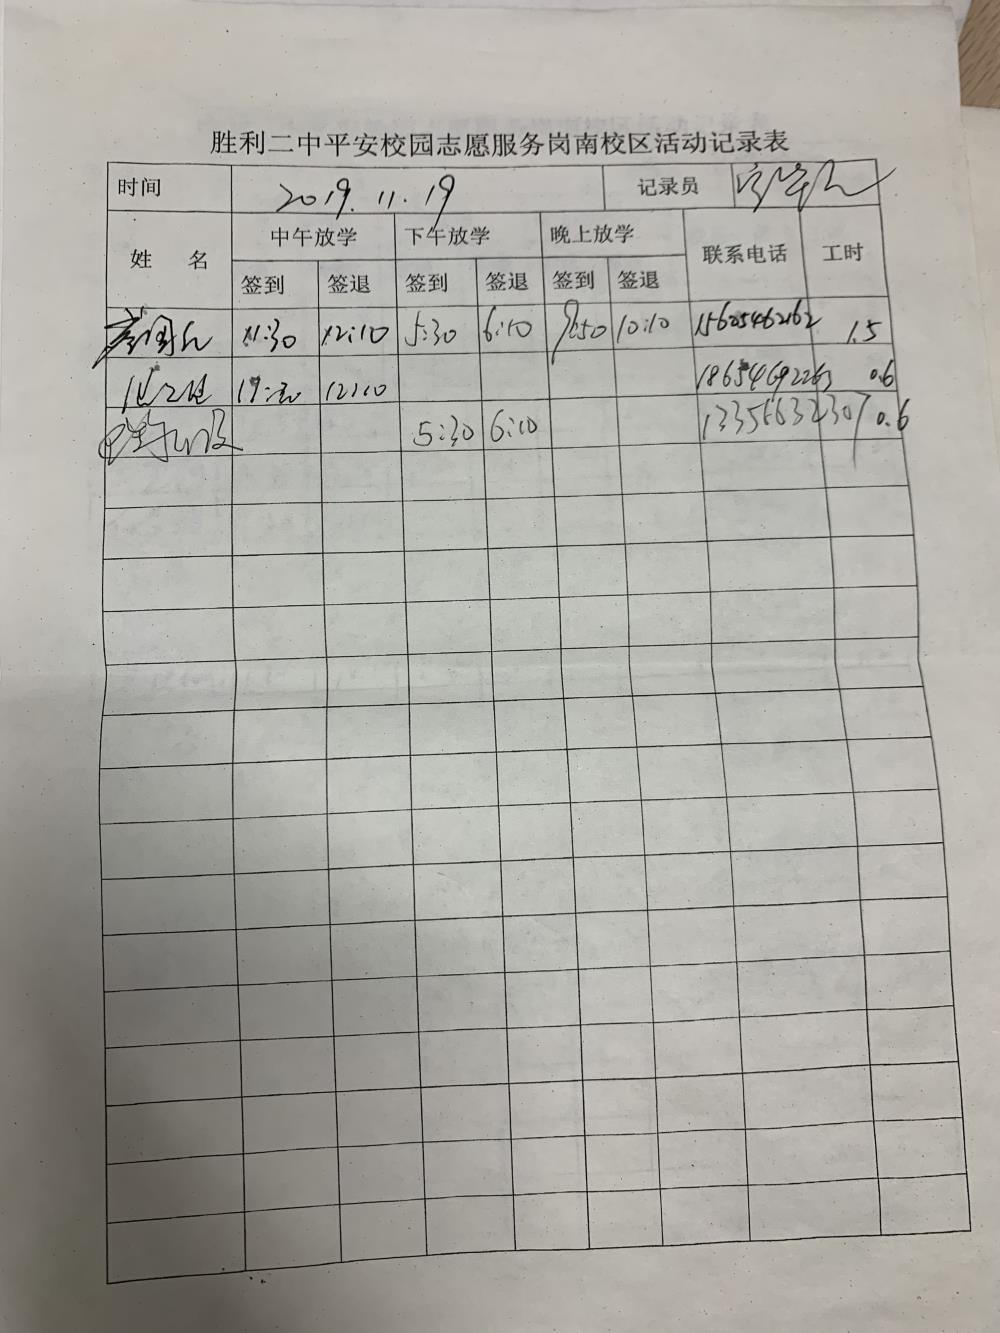 胜利二中平安校园志愿服务岗南校区活动记录表
时间 2019.11.19 记录员
姓 名 中午放学 下午放学 晚上放学 联系电话 工时
签到 签退 签到 签退 签到 签退
11:30 12:10 5:30 6:10 9:50 10:10 15605462162 1.5
12:10 18654692263 0.6
5:30 6:10 0.6